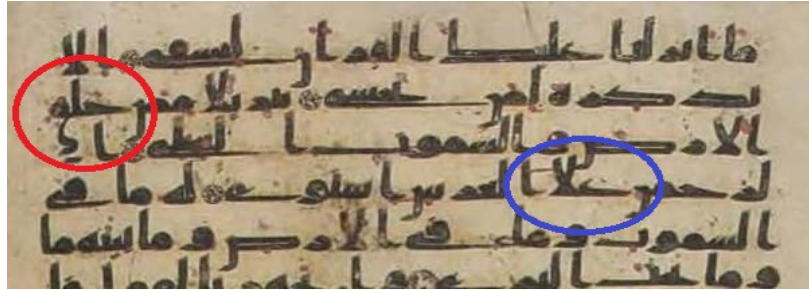 ما انزلنا عليك القران لتشقى الا
تذكرة لمن يخشى تنزيلا ممن خلق
الارض والسموت العلى ا
لرحمن علا العرش استوى له ما في
السموت وما في الارض وما بينهما
وما تحت الثرى وان تجهر بالقول فا